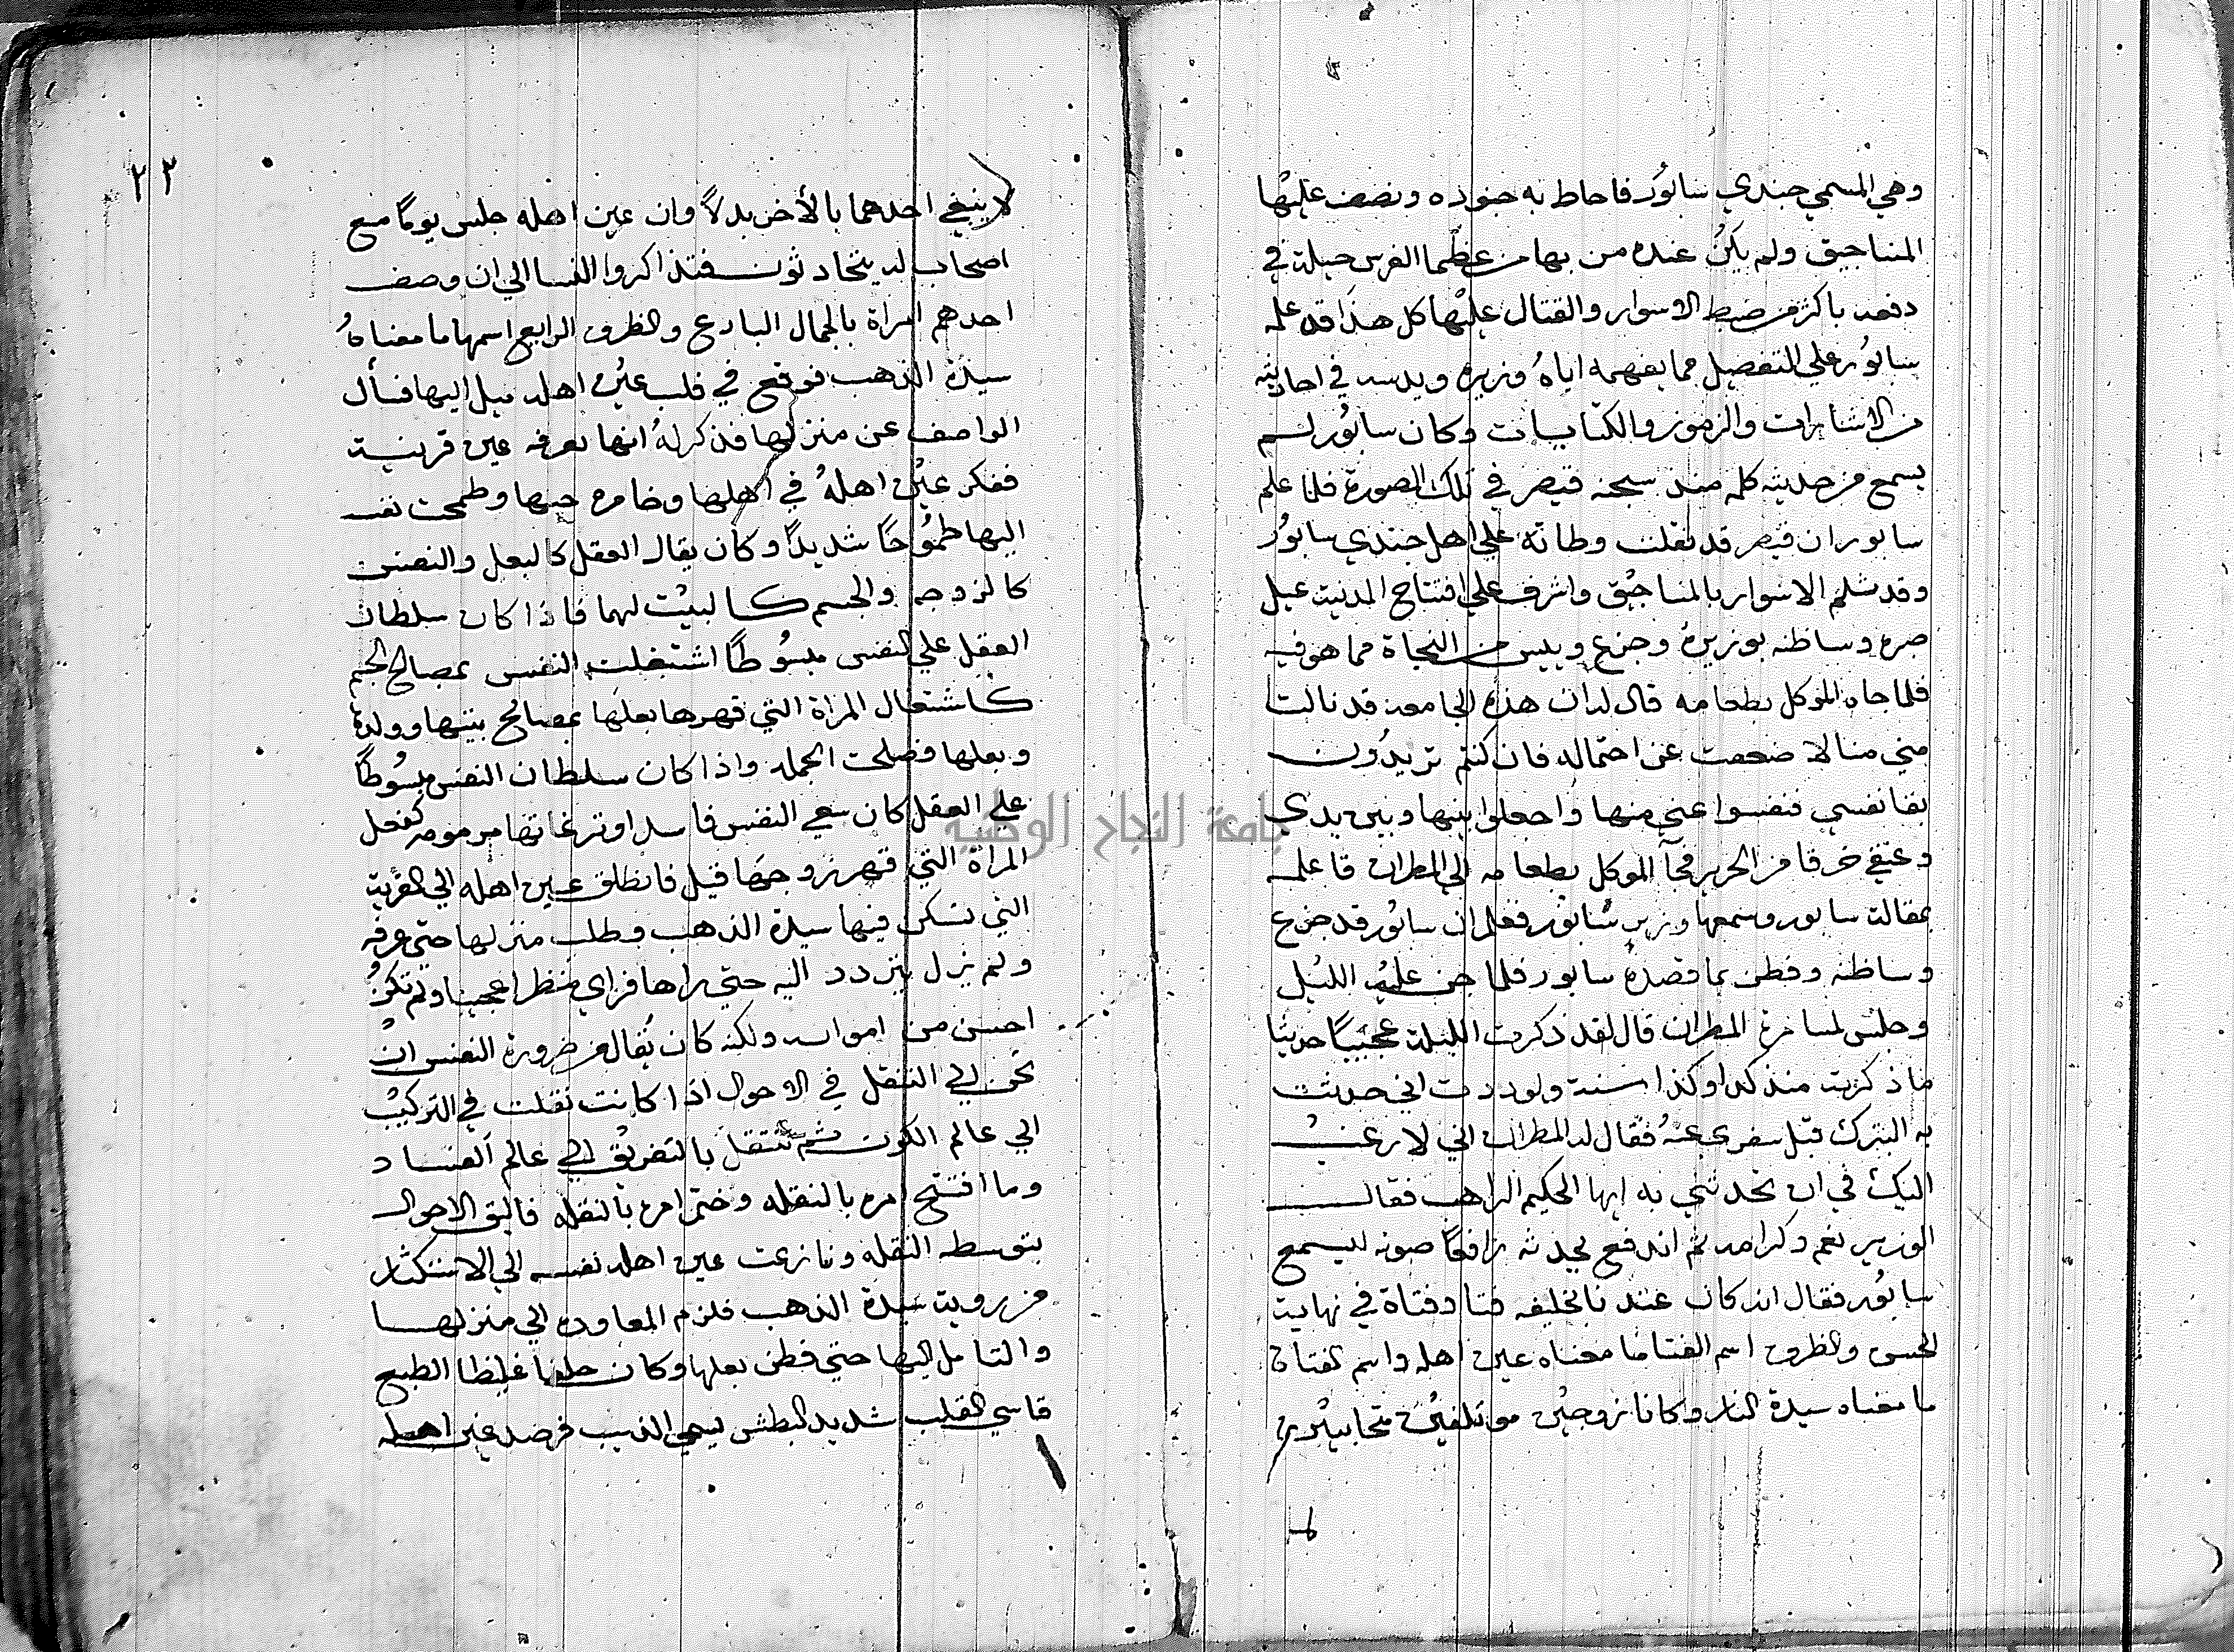 وهي المسمي جندي سابور فاحاط به جنوده ونصف عليها
المناجيق ولم يكن عنده من بها من عظما الفرس حيلة في
دفعه باكثر من ضبط الاسوار والقتال عليها كل هذا قد علمه
سابور علي التفصيل مما يفهمه اياه وزيره ويدسه في احاديثه
من الاشارات والرموز والكنايات وكان سابور لم
يسمع من حديثه كلمه منذ سجنه قيصر في تلك الصورة فلما علم
سابور ان قيصر قد ثقلت وطاته علي اهل جندي سابور
وقد شلم الاسوار بالمناجيق واشرف علي افتتاح المدينة عيل
صبره وساظنه بوزيره وجزع ويبس من النجاة مما هو فيه
فلما جاه الموكل بطعامه قال له ان هذه الجامعه قد نالت
مني منالا ضعفت عن احتماله فان كنتم تريدون
بقا نفسي فنفسوا عني منها واجعلوا بينها وبين يدي
وعنقي خرقا من الحرير فجآ الموكل بطعامه الي المطران فاعلمه
بمقالة سابور وسمعها وزير سابور فعلم ان سابور قد جزع
وساظنه وفطن بما قصده سابور فلما جن عليه الليل
وجلس لمسامرة المطران قال لقد ذكرت الليلة عجيبا حديثا
ما ذكرته منذ كذا وكذا سنة ولوددت اني حدثت
به البترك قبل سفري عنه فقال له المطران اني لارغب
اليك في ان تحدثني به ايها الحكيم الراهب فقال
الوزير نعم وكرامه ثم اندفع يحدثه رافعا صوته ليسمع
سابور فقال انه كان عندنا بالخليفه فتا وفتاة في نهاية
الحسن والظرف اسم الفتا ما معناه عين اهله واسم الفتاة
ما معناه سيدة النار وكانا زوجين موتلفين متحابين
٢٢
لا ينبغي احدهما بالأخر بدلاً وان عين اهله جلس يوماً مع
اصحاب له يتحادثون فتذاكروا النسا الي ان وصف
احدهم امراة بالجمال البارع والظرف الرايع اسمها ما معناهُ
سيدة الذهب فوقع في قلب عين اهله ميل اليها فسأل
الواصف عن منزلها فذكر لهُ انها بعرفه عين قرية
ففكر عين اهلهُ في اهلها وخامره حبها وطمحت نفسه
اليها طموُحاً شديداً وكان يقال العقل كالبعل والنفس
كالزوجه والجسم كالبيت لهما فاذا كان سلطان
العقل علي النفس مبسوُطاً اشتغلت النفس بمصالح الجسم
كاشتغال المراة التي قهرها بعلها بمصالح بيتها وولدها
وبعلها فصلحت الجمله واذا كان سلطان النفس مبسوُطاً
علي العقل كان سعي النفس فاسدا ونزغاتها مرمومه كفعل
المراة التي قهر زوجها قيل فانطلق عين اهله الي القرية
التي تسكن فيها سيدة الذهب وطلب منزلها حتي عرفه
ولم يزل يتردد اليه حتي راها فراي منظرا عجيبا ولم تكن
احسن من امراته ولكنه كان يُقال من ضرورة النفس ان
تحن الي التنقل في الاحوال اذا كانت نقلت في التركيب
الي عالم الكون ثم تنتقل بالتفريق الي عالم الفساد
وما افتتح امره بالنقله وختم امره بالنقله فاليق الاحوال
بتوسطه النقله ونازعت عين اهله نفسه الي الاستكثار
من روية سيدة الذهب فلزم المعاوده الي منزلها
والتامل اليها حتي فطن بعلها وكان جلفا غليظا الطبع
قاسي القلب شديد البطش يسمي الذيب فرصد عين اهله
جامعة النجاح الوطنية